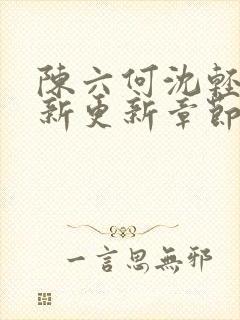 陳六何沈輕
新更新章節
一言思無邪